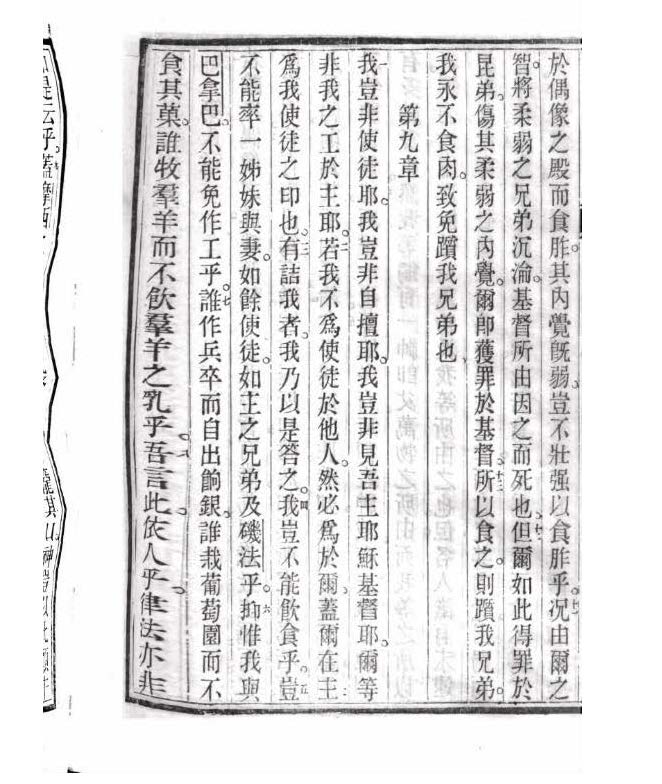 於偶像之殿而食胙。其內覺旣弱。豈不壯强以食胙乎。十一況由爾之
智。將柔弱之兄弟沉淪。基督所由因之而死也。十二但爾如此得罪於
昆弟。傷其柔弱之內覺。爾卽獲罪於基督。十三所以食之。則躓我兄弟。
我永不食肉。致免躓我兄弟也
第九章
我豈非使徒耶。我豈非自擅耶。我豈非見吾主耶穌基督耶。爾等
非我之工於主耶。二若我不爲使徒於他人。然必爲於爾。蓋爾在主
爲我使徒之印也。三有詰我者。我乃以是答之。四我豈不能飲食乎。五豈
不能率一姊妹與妻。如餘使徒。如主之兄弟及磯法乎。六抑惟我與
巴拿巴。不能免作工乎。七誰作兵卒而自出餉銀。誰栽葡萄園而不
食其菓。誰牧羣羊而不飲羣羊之乳乎。八吾言此。依人乎。律法亦非
是云乎。九蓋摩西